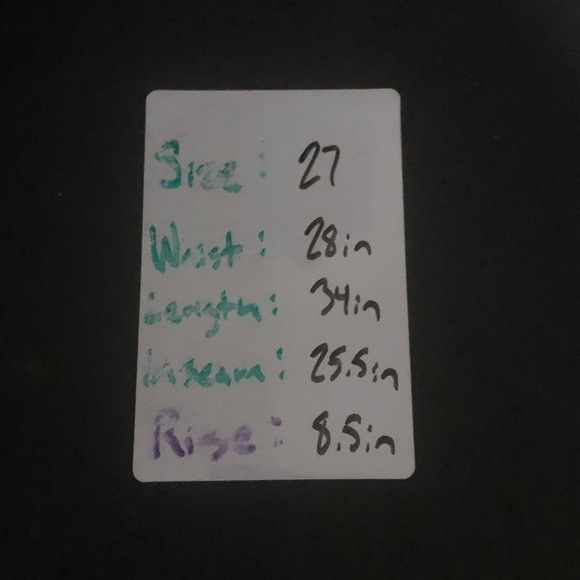 Size: 27
Waist: 28in
Length: 34in
Inseam: 25.5in
Rise: 8.5in